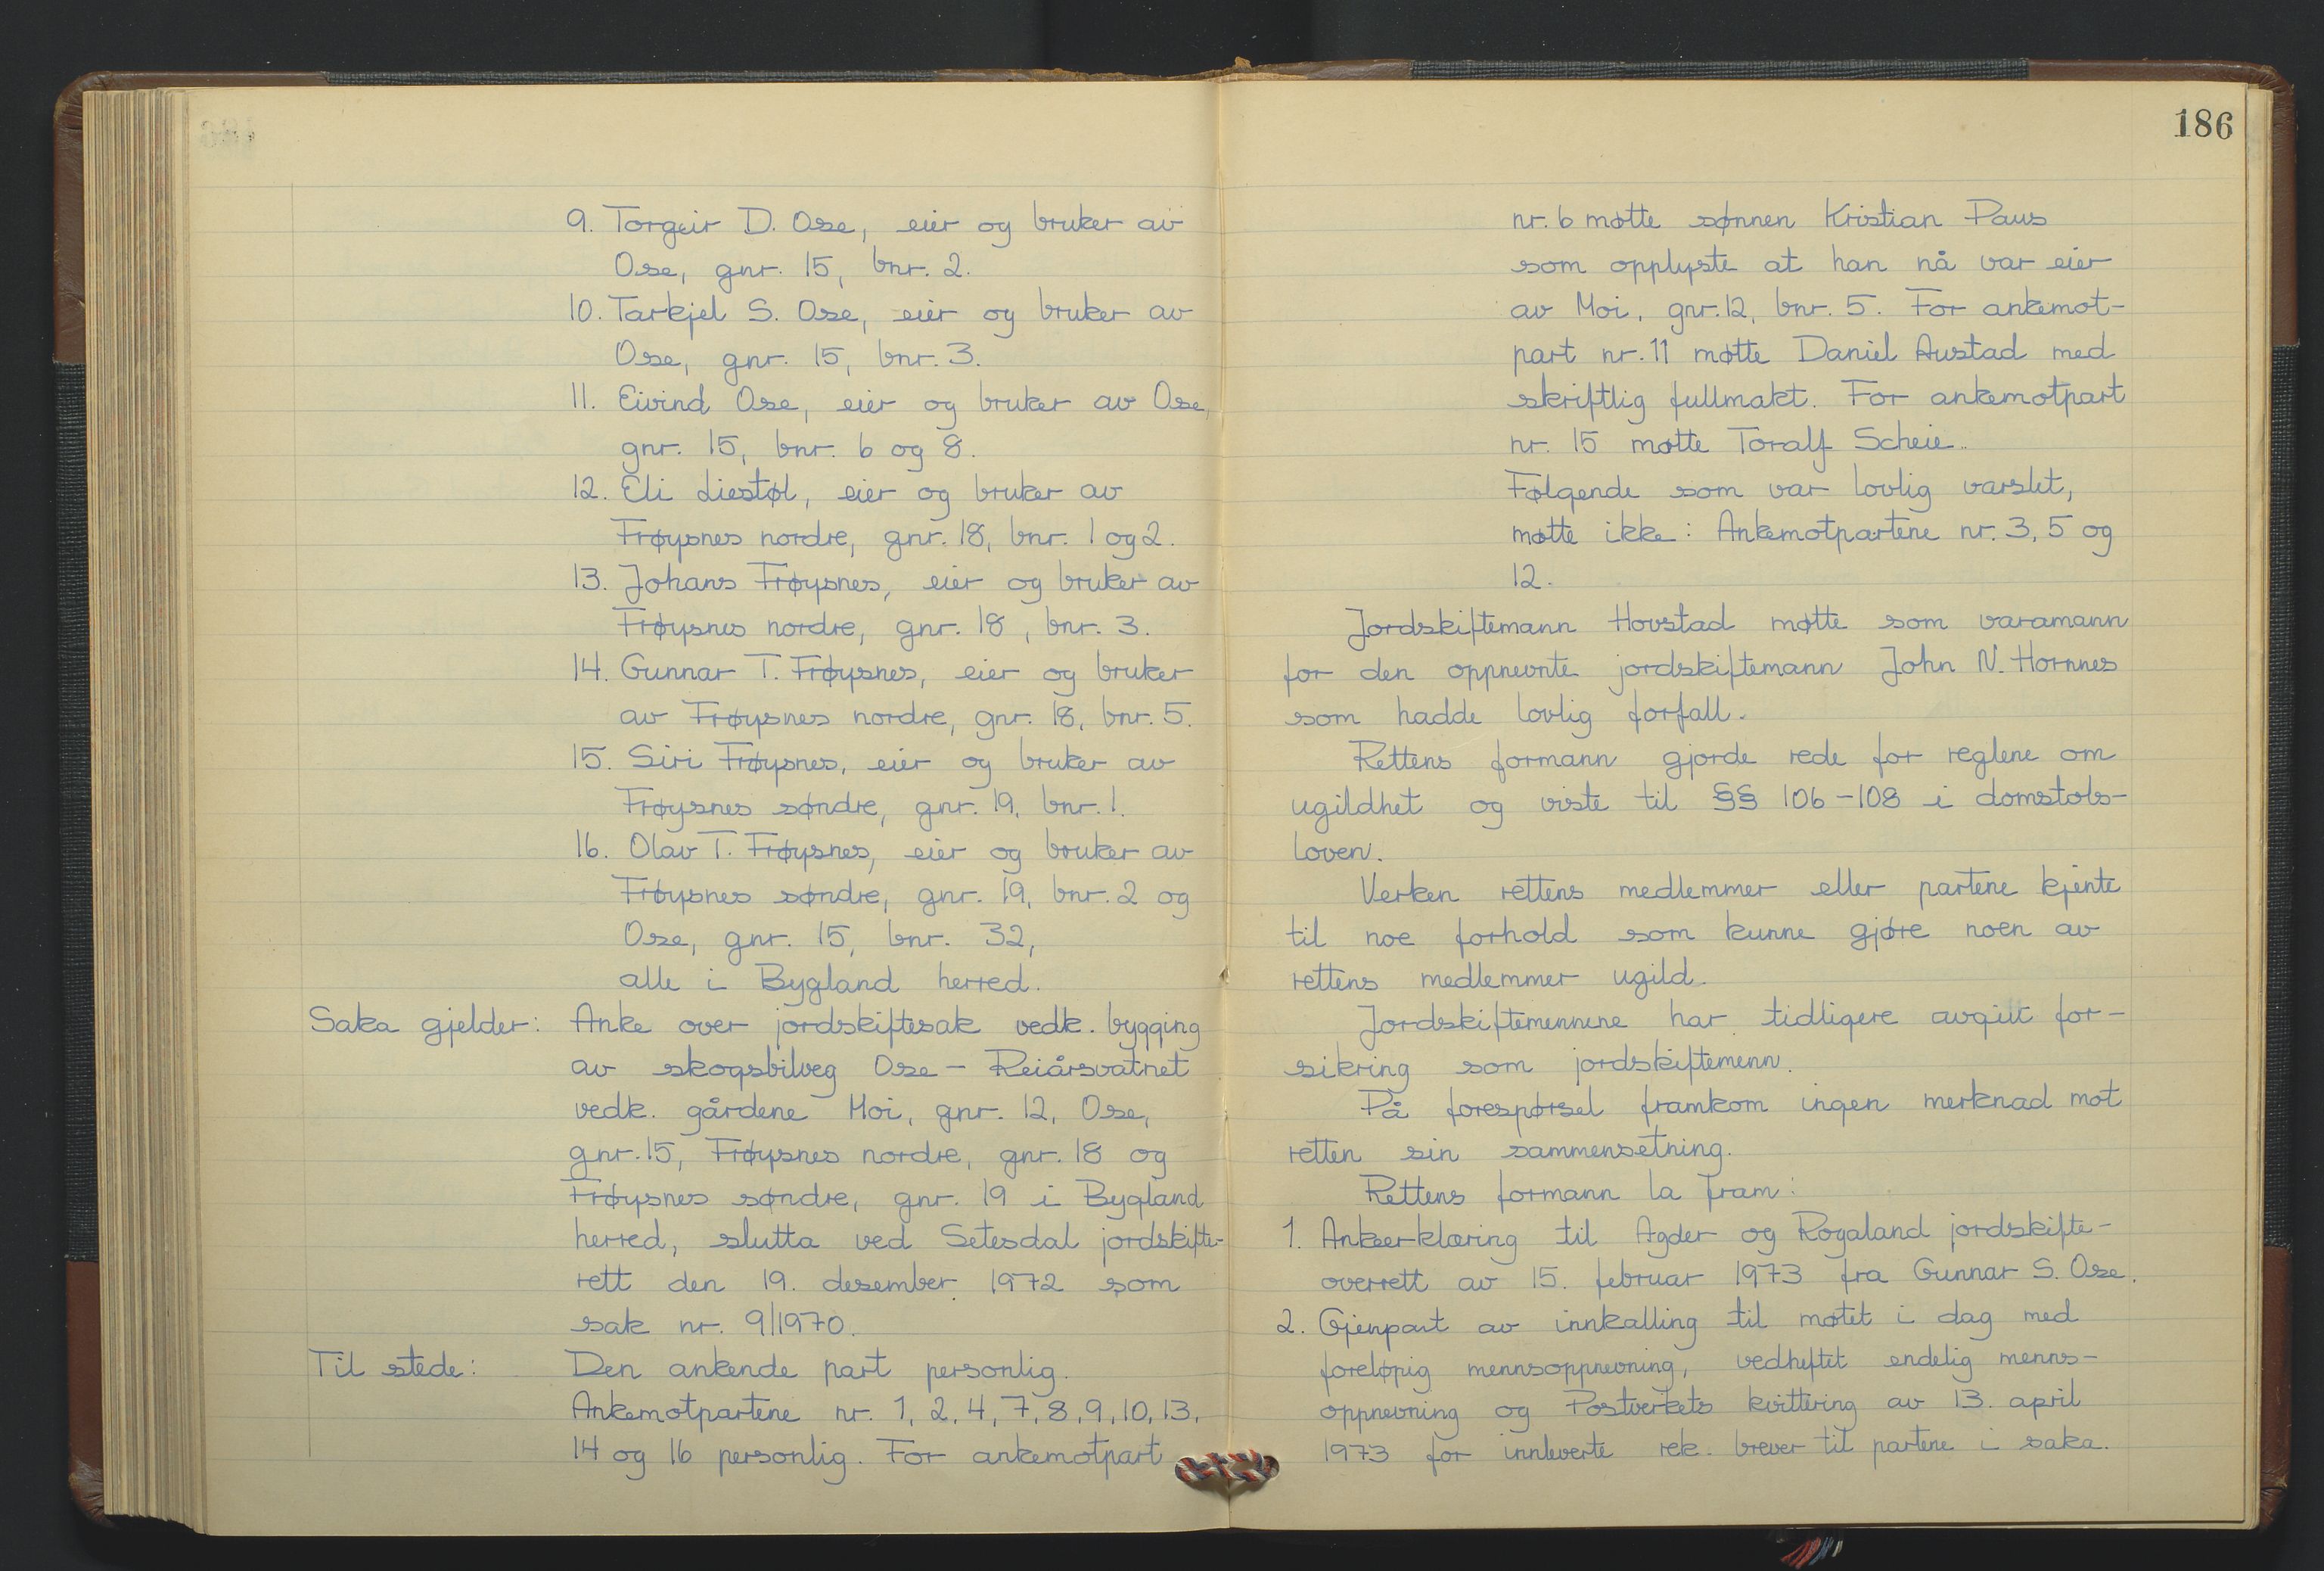 9. Torgeir D. Ose, eier og bruker av
Ose, gnr. 15, bnr. 2.
10. Tarkjel S. Ose, eier og bruker av
Ose, gnr. 15, bnr. 3.
11. Eivind Ose, eier og bruker av Ose,
gnr. 15, bnr. 6 og 8.
12. Eli Liestøl, eier og bruker av
Frøysnes nordre, gnr. 18, bnr. 1 og 2.
13. Johans Frøysnes, eier og bruker av
Frøysnes nordre, gnr. 18, bnr. 3.
14. Gunnar T. Frøysnes, eier og bruker
av Frøysnes nordre, gnr. 18, bnr. 5.
15. Siri Frøysnes, eier og bruker av
Frøysnes søndre, gnr. 19, bnr. 1.
16. Olav T. Frøysnes, eier og bruker av
Frøysnes søndre, gnr. 19, bnr. 2 og
Ose, gnr. 15, bnr. 32,
alle i Bygland herred.
Saka gjelder: Anke over jordskiftesak vedk. bygging
av skogsbilveg Ose - Reiårsvatnet
vedk. gårdene Moi, gnr. 12, Ose,
gnr. 15, Frøysnes nordre, gnr. 18 og
Frøysnes søndre, gnr. 19 i Bygland
herred, slutta ved Setesdal jordskifte-
rett den 19. desember 1972 som
sak nr. 9/1970.
Til stede: Den ankende part personlig.
Ankemotpartene nr. 1, 2, 4, 7, 8, 9, 10, 13,
14 og 16 personlig. For ankemotpart
186
nr. 6 møtte sønnen Kristian Paus
som opplyste at han nå var eier
av Moi, gnr. 12, bnr. 5. For ankemot-
part nr. 11 møtte Daniel Austad med
skriftlig fullmakt. For ankemotpart
nr. 15 møtte Toralf Scheie.
Følgende som var lovlig varslet,
møtte ikke: Ankemotpartene nr. 3, 5 og
12.
Jordskiftemann Hovstad møtte som varamann
for den oppnevnte jordskiftemann John N. Hornnes
som hadde lovlig forfall.
Rettens formann gjorde rede for reglene om
ugildhet og viste til §§ 106-108 i domstols-
loven.
Verken rettens medlemmer eller partene kjente
til noe forhold som kunne gjøre noen av
rettens medlemmer ugild.
Jordskiftemennene har tidligere avgitt for-
sikring som jordskiftemenn.
På forespørsel framkom ingen merknad mot
retten sin sammensetning.
Rettens formann la fram:
1. Ankeerklæring til Agder og Rogaland jordskifte-
overrett av 15. februar 1973 fra Gunnar S. Ose.
2. Gjenpart av innkalling til møtet i dag med
foreløpig mennsoppnevning, vedheftet endelig menns-
oppnevning og Postverkets kvittering av 13. april
1973 for innleverte rek. brever til partene i saka.